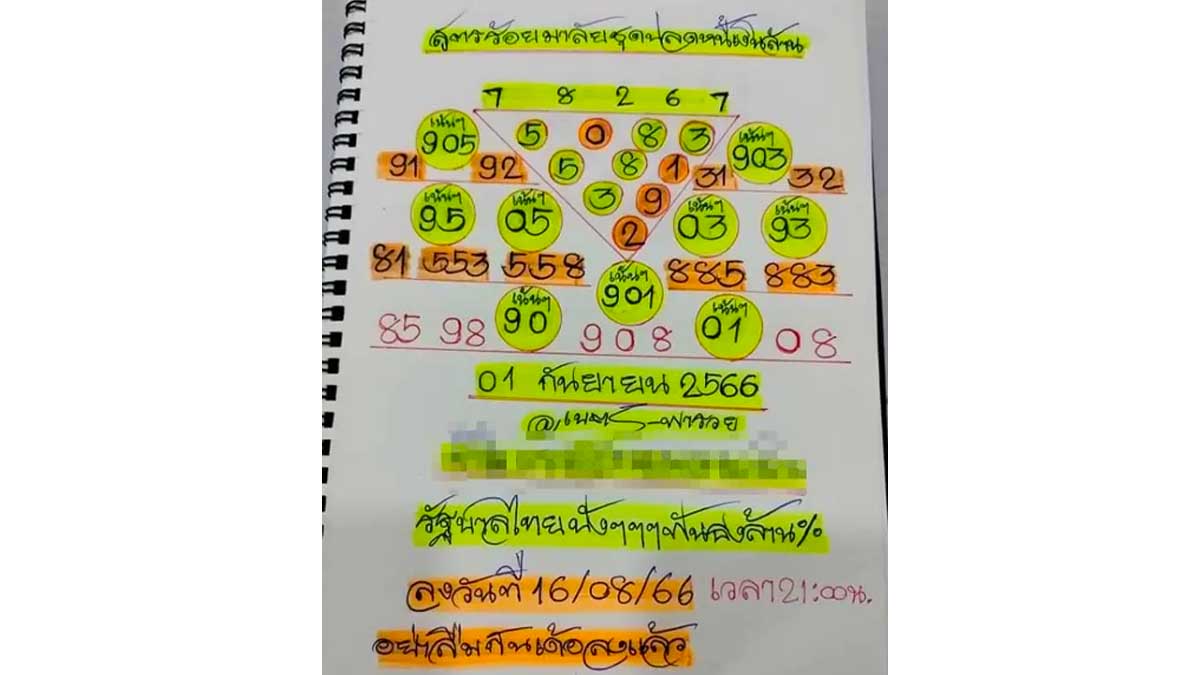 สูตรร้อยมาลัยชุดปลดหนี้เงินล้าน
7 8 2 6 7
เน้นๆ 905 5 0 8 3 เน้นๆ 903
91 92 5 8 1 31 32
เน้นๆ 95 เน้นๆ 05 3 9 เน้นๆ 03 เน้นๆ 93
2
81 553 558 เน้นๆ 901 885 883
85 98 เน้นๆ 90 908 เน้นๆ 01 08
01 กันยายน 2566
รัฐบาลไทยปังๆๆๆพันล้าน%
ลงวันที่ 16/08/66 เวลา21:00น.
อย่าลืมกันเด้อลงแล้ว